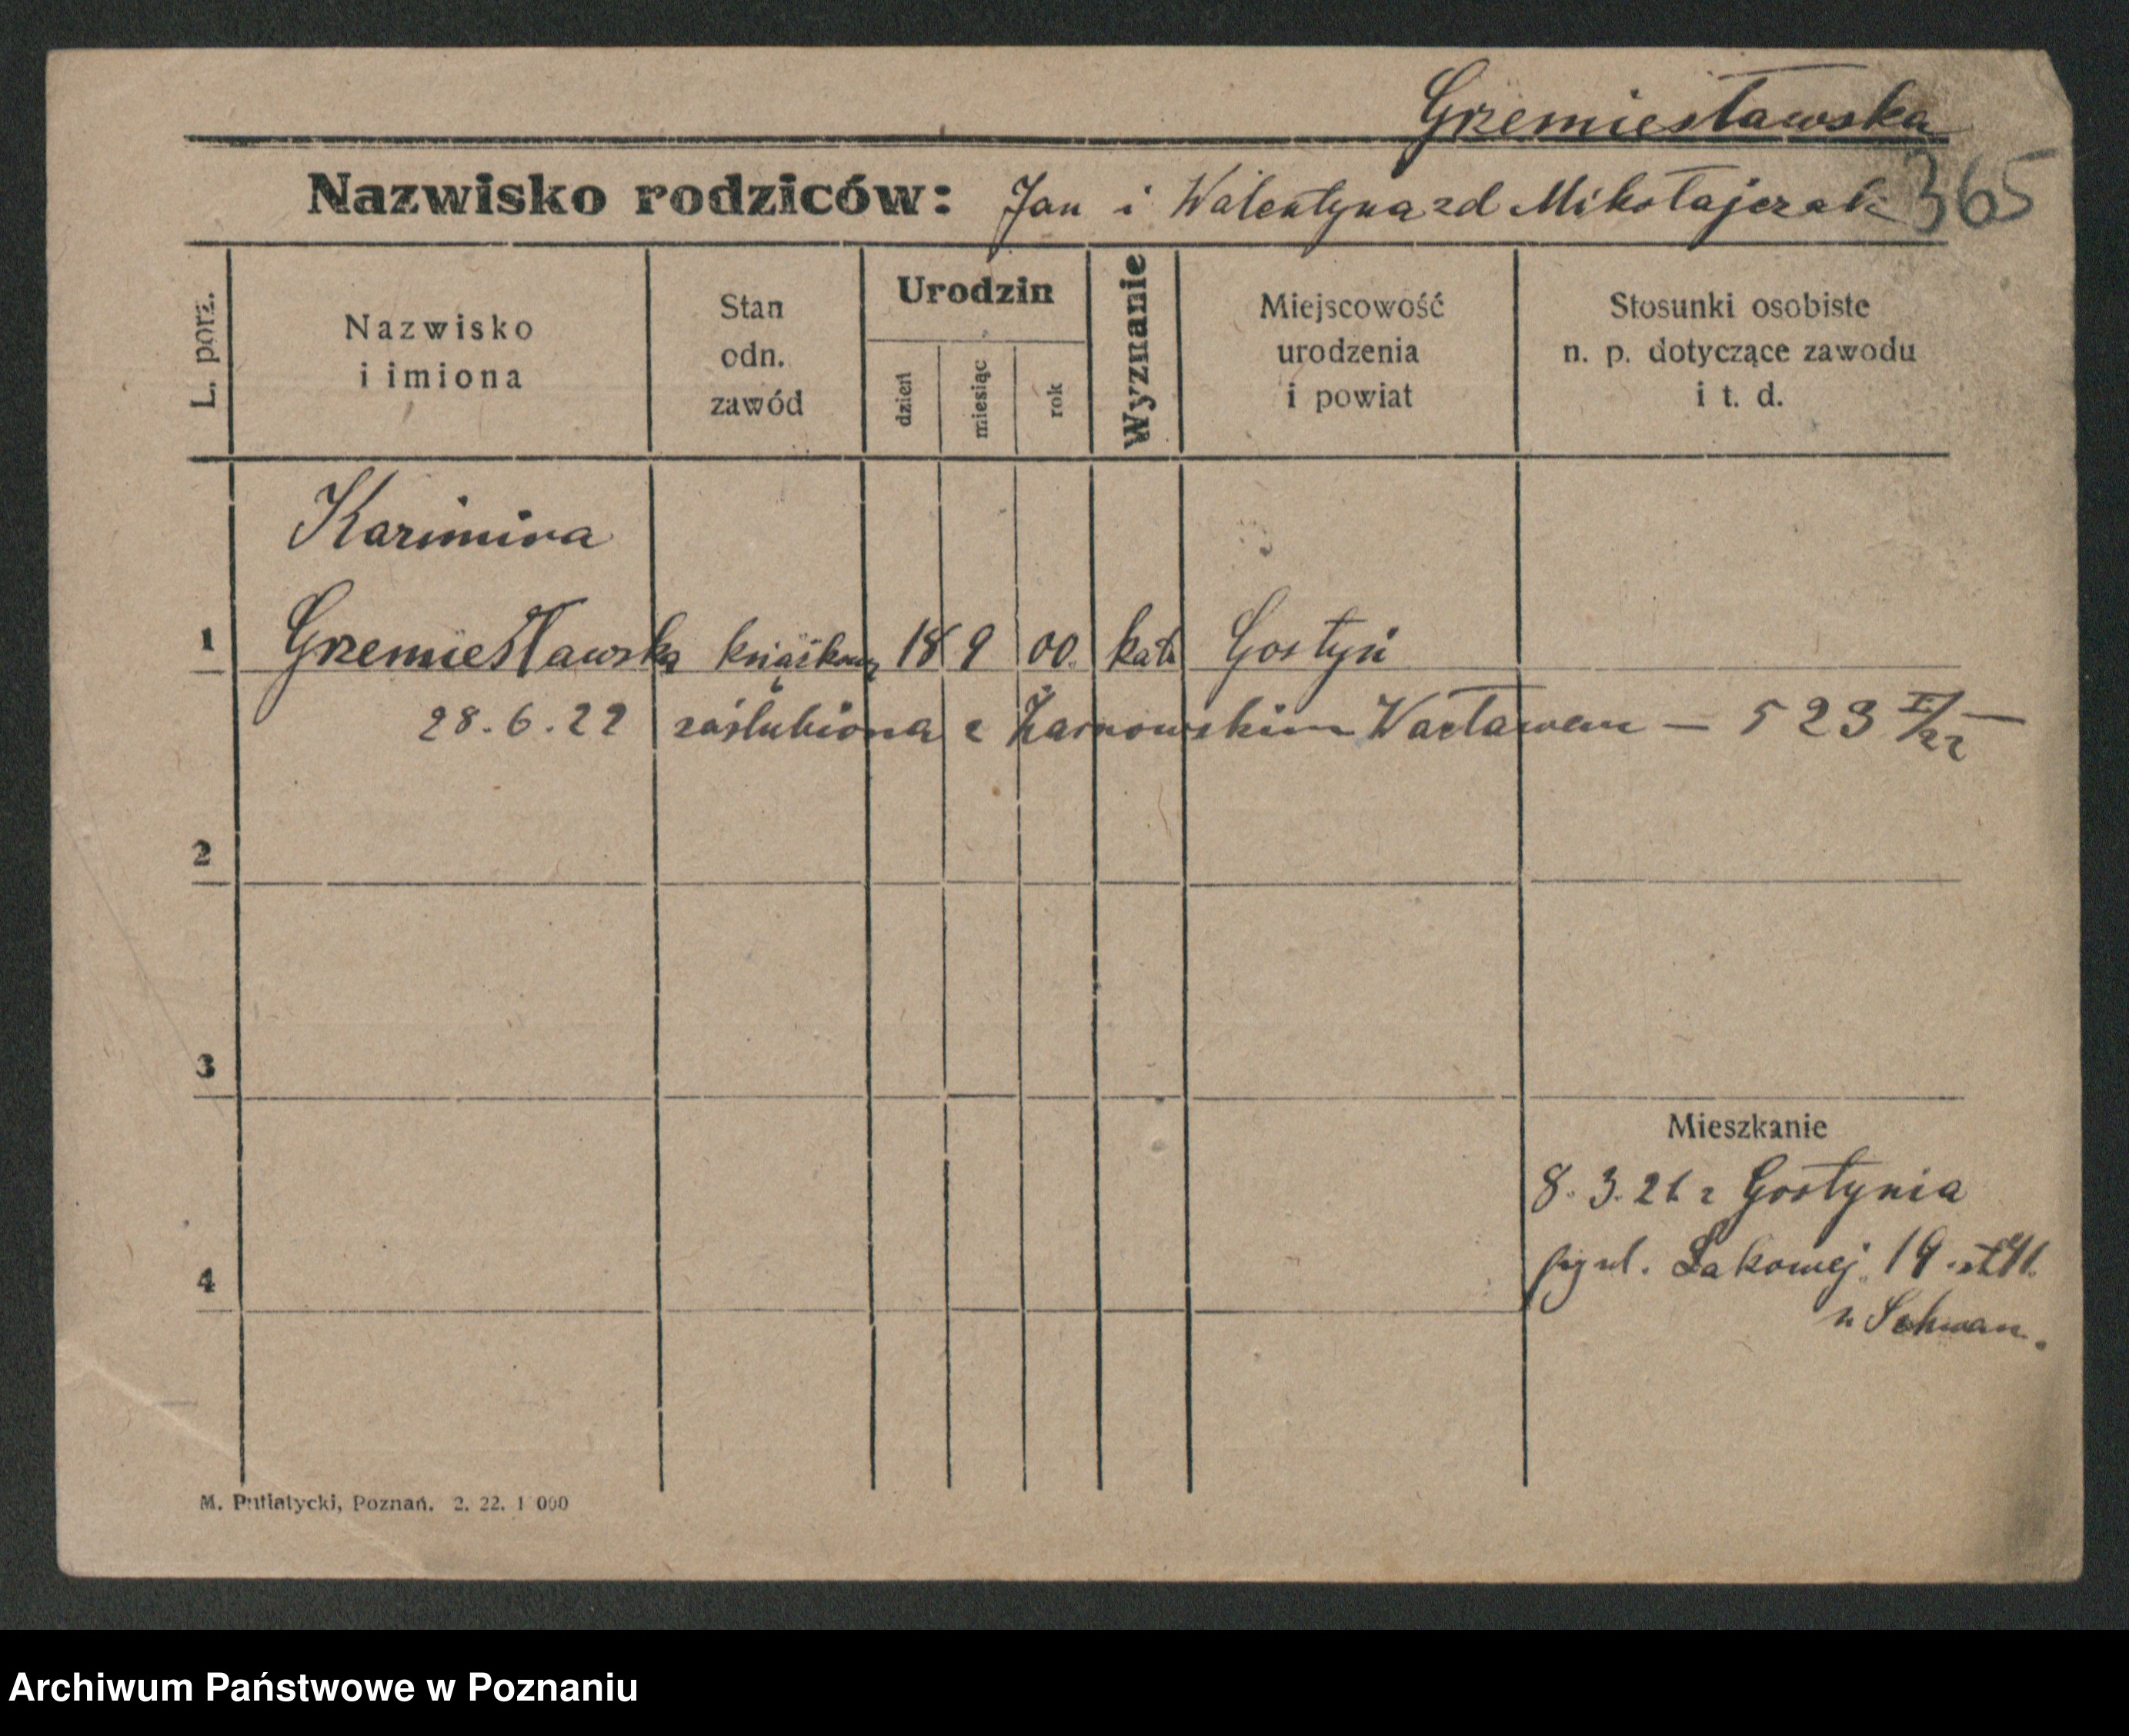 Grzemiesławska
Nazwisko rodziców: Jan i Walentyna zd Mikołajczak 365
L. porz.
Nazwisko
i imiona
Stan
odn.
zawód
Urodzin
dzień
miesiąc
rok
Wyznanie
Miejscowość
urodzenia
i powiat
Stosunki osobiste
n. p. dotyczące zawodu
i t. d.
Kazimira
1 Grzemiesławska książkowa 18 9 00. kat. Gostyń
28.6.22 zaślubiona z Żarnowskim Wacławem — 523
2
3
Mieszkanie
8.3.21 z Gostynia
przy ul. Łąkowej 19
4
u Schwan.
M. Putiatycki, Poznań. 2. 22. 1 000
Archiwum Państwowe w Poznaniu